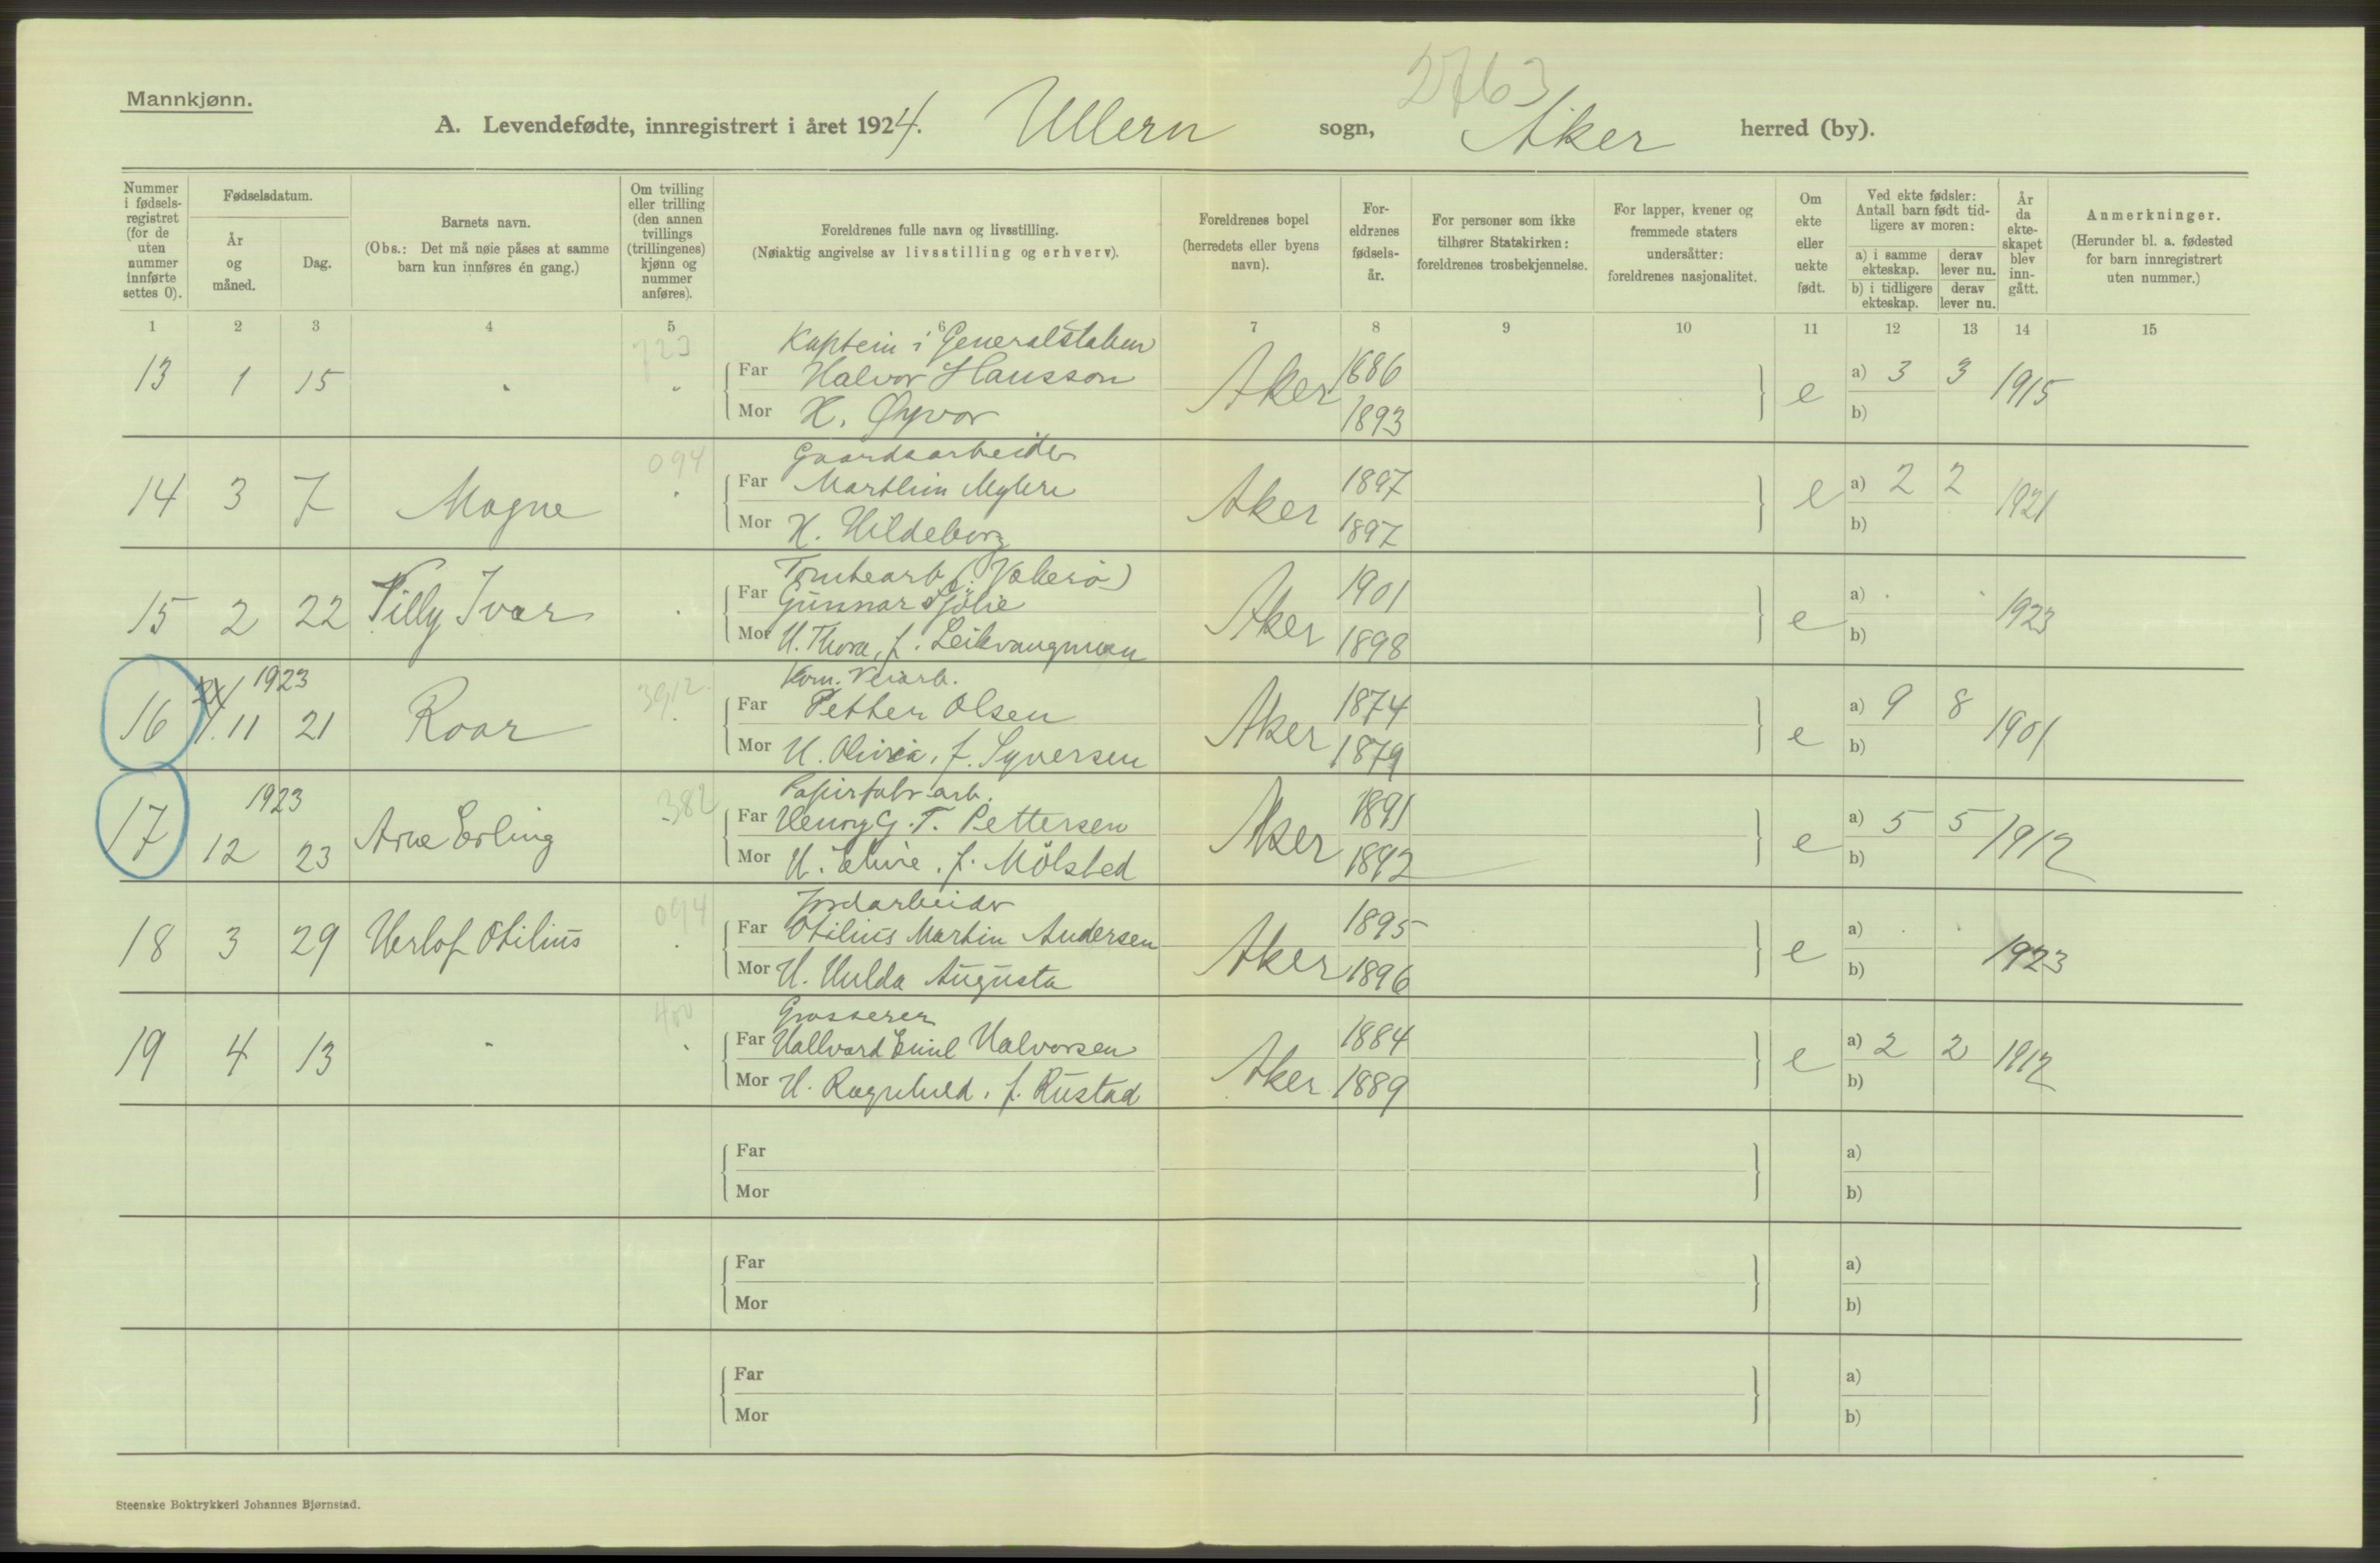 2763
Mannkjønn.
A. Levendefødte, innregistrert i året 1924. Ullern sogn, Aker herred (by).
Nummer i fødselsregistret (for de uten nummer innførte settes 0).
Fødselsdatum.
År og måned.
Dag.
Barnets navn.
(Obs.: Det må nøie påses at samme barn kun innføres én gang.)
Om tvilling eller trilling (den annen tvillings (trillingenes) kjønn og nummer anføres).
Foreldrenes fulle navn og livsstilling.
(Nøiaktig angivelse av livsstilling og erhverv).
Foreldrenes bopel (herredets eller byens navn).
Foreldrenes fødselsår.
For personer som ikke tilhører Statskirken: foreldrenes trosbekjennelse.
For lapper, kvener og fremmede staters undersåtter: foreldrenes nasjonalitet.
Om ekte eller uekte født.
Ved ekte fødsler: Antall barn født tidligere av moren:
a) i samme ekteskap. derav lever nu.
b) i tidligere ekteskap. derav lever nu.
År da ekteskapet blev inngått.
Anmerkninger.
(Herunder bl. a. fødested for barn innregistrert uten nummer.)
1 2 3 4 5 6 7 8 9 10 11 12 13 14 15
Kaptein i Generalstaben
13 1 15 Far Halvor Hansson Aker 1886 e a) 3 3 1915
Mor H. Øyvor 1893 b)
094 Gaardsarbeider
14 3 7 Magne Far Marthin Myhre Aker 1897 e a) 2 2 1921
Mor H. Hildeborg 1897 b)
Tomtearb. (Vækerø)
15 2 22 Villy Ivar Far Gunnar Sjølie Aker 1901 e a) 1923
Mor H. Thora, f. 1898 b)
1923 3912 Kom. Veiarb.
16 11 21 Roar Far Petter Olsen Aker 1874 e a) 9 8 1901
Mor H. Olivia, f. Syversen 1879 b)
1923 382 Papirfabr. arb.
17 12 23 Arne Erling Far Henry G. T. Pettersen Aker 1891 e a) 5 5 1912
Mor H. f. Mølsted 1892 b)
094 Jordarbeider
18 3 29 Herlof Otilius Far Otilius Martin Andersen Aker 1895 e a) 1923
Mor H. Hulda Augusta 1896 b)
400 Grosserer
19 4 13 Far Hallvard Emil Halvorsen Aker 1884 e a) 2 2 1912
Mor H. Ragnhild, f. Rustad 1889 b)
Far a)
Mor b)
Far a)
Mor b)
Far a)
Mor b)
Steenske Boktrykkeri Johannes Bjørnstad.